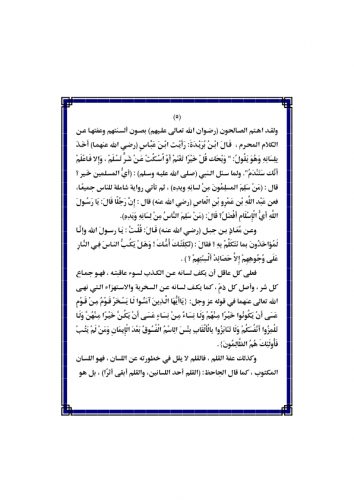 (٥)
ولقد اهتم الصالحون (رضوان الله تعالى عليهم) بصون ألسنتهم وعفتها عن
الكلام المحرم ، قَالَ ابْنُ بُرَيْدَةَ: رَأَيْتُ ابْنَ عَبَّاسٍ (رضي الله عنهما) آخِذَ
بِلِسَانِهِ وَهُوَ يَقُولُ: "وَيْحَكَ قُلْ خَيْرًا تَغْنَمْ أَوْ اسْكُتْ عَنْ شَرٍّ تَسْلَمْ ، وَإِلا فَاعْلَمْ
أَنَّكَ سَتَنْدَمُ"، ولما سئل النبي (صلى الله عليه وسلم) : (أيُّ المسلمين خير؟
قال : (مَنْ سَلِمَ المسلِمُونَ مِنْ لسانِهِ ويدِهِ) ، ثم تأتي رواية شاملة للناس جميعًا،
فعن عبد اللَّهِ بْن عَمْرِو بْنِ الْعَاصِ (رضي الله عنه) قال : إِنَّ رَجُلًا قَالَ: يَا رَسُولَ
اللَّهِ أَيُّ الْإِسْلَامِ أَفْضَلُ؟ قَالَ: (مَنْ سَلِمَ النَّاسُ مِنْ لِسَانِهِ وَيَدِهِ).
وعن مُعَاذِ بن جبلٍ (رضي الله عنه) قَالَ: قُلْتُ : يَا رسولَ الله وإنَّا
لَمُؤاخَذُونَ بما نَتَكَلَّمُ بِهِ ؟ فقالَ : (ثَكِلَتْكَ أُمُّكَ ! وَهَلْ يَكُبُّ الناسَ فِي النَّارِ
عَلَى وُجُوهِهِمْ إِلاَّ حَصَائِدُ أَلْسِنَتِهِمْ ؟ ) .
فعلى كل عاقل أن يكف لسانه عن الكذب لسوء عاقبته ، فهو جماع
كل شر ، وأصل كل ذم ، كما يكف لسانه عن السخرية والاستهزاء التي نهى
الله تعالى عنهما في قوله عز وجل: {يَاأَيُّهَا الَّذِينَ آمَنُوا لَا يَسْخَرْ قَوْمٌ مِنْ قَوْمٍ
عَسَى أَنْ يَكُونُوا خَيْرًا مِنْهُمْ وَلَا نِسَاءٌ مِنْ نِسَاءٍ عَسَى أَنْ يَكُنَّ خَيْرًا مِنْهُنَّ وَلَا
تَلْمِزُوا أَنْفُسَكُمْ وَلَا تَنَابَزُوا بِالْأَلْقَابِ بِئْسَ الِاسْمُ الْفُسُوقُ بَعْدَ الْإِيمَانِ وَمَنْ لَمْ يَتُبْ
فَأُولَئِكَ هُمُ الظَّالِمُونَ} .
وكذلك عفة القلم ، فالقلم لا يقل في خطورته عن اللسان ، فهو اللسان
المكتوب ، كما قال الجاحظ: (القلم أحد اللسانين، والقلم أبقى أثرًا) ، بل هو